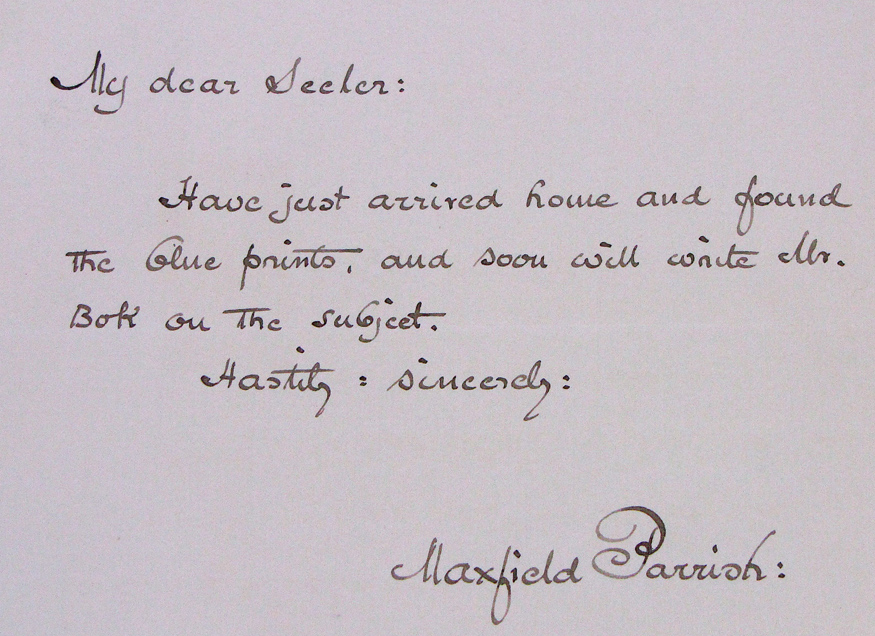 My dear Seeler:
Have just arrived home and found
the blue prints, and soon will write Mr.
Bok on the subject.
Hastily : sincerely:
Maxfield Parrish: